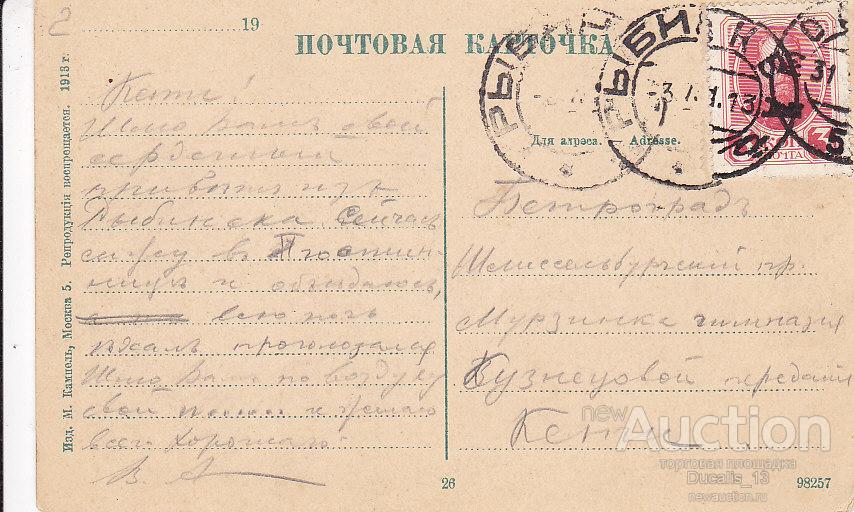 2
19
ПОЧТОВАЯ КАРТОЧКА
РЫБИНСК
РЫБИНСК
Для адреса. — Adresse.
Изд. М. Кампель, Москва 5. Репродукція воспрещается. 1913 г.
Шлю Вамъ свой
сердечный
приветъ изъ
Рыбинска. Сейчасъ
сижу в Гостин-
нице и обедаюсь,
всю ночь
ехалъ проголодался
Шлю Вамъ по воздуху
свой и желаю
всего хорошаго
В. А
Петроградъ
Шлиссельбургский пр.
Мурзинка гимназия
Кузнецовой передать
26
98257
newAuction
торговая площадка
Ducalis_13
newauction.ru